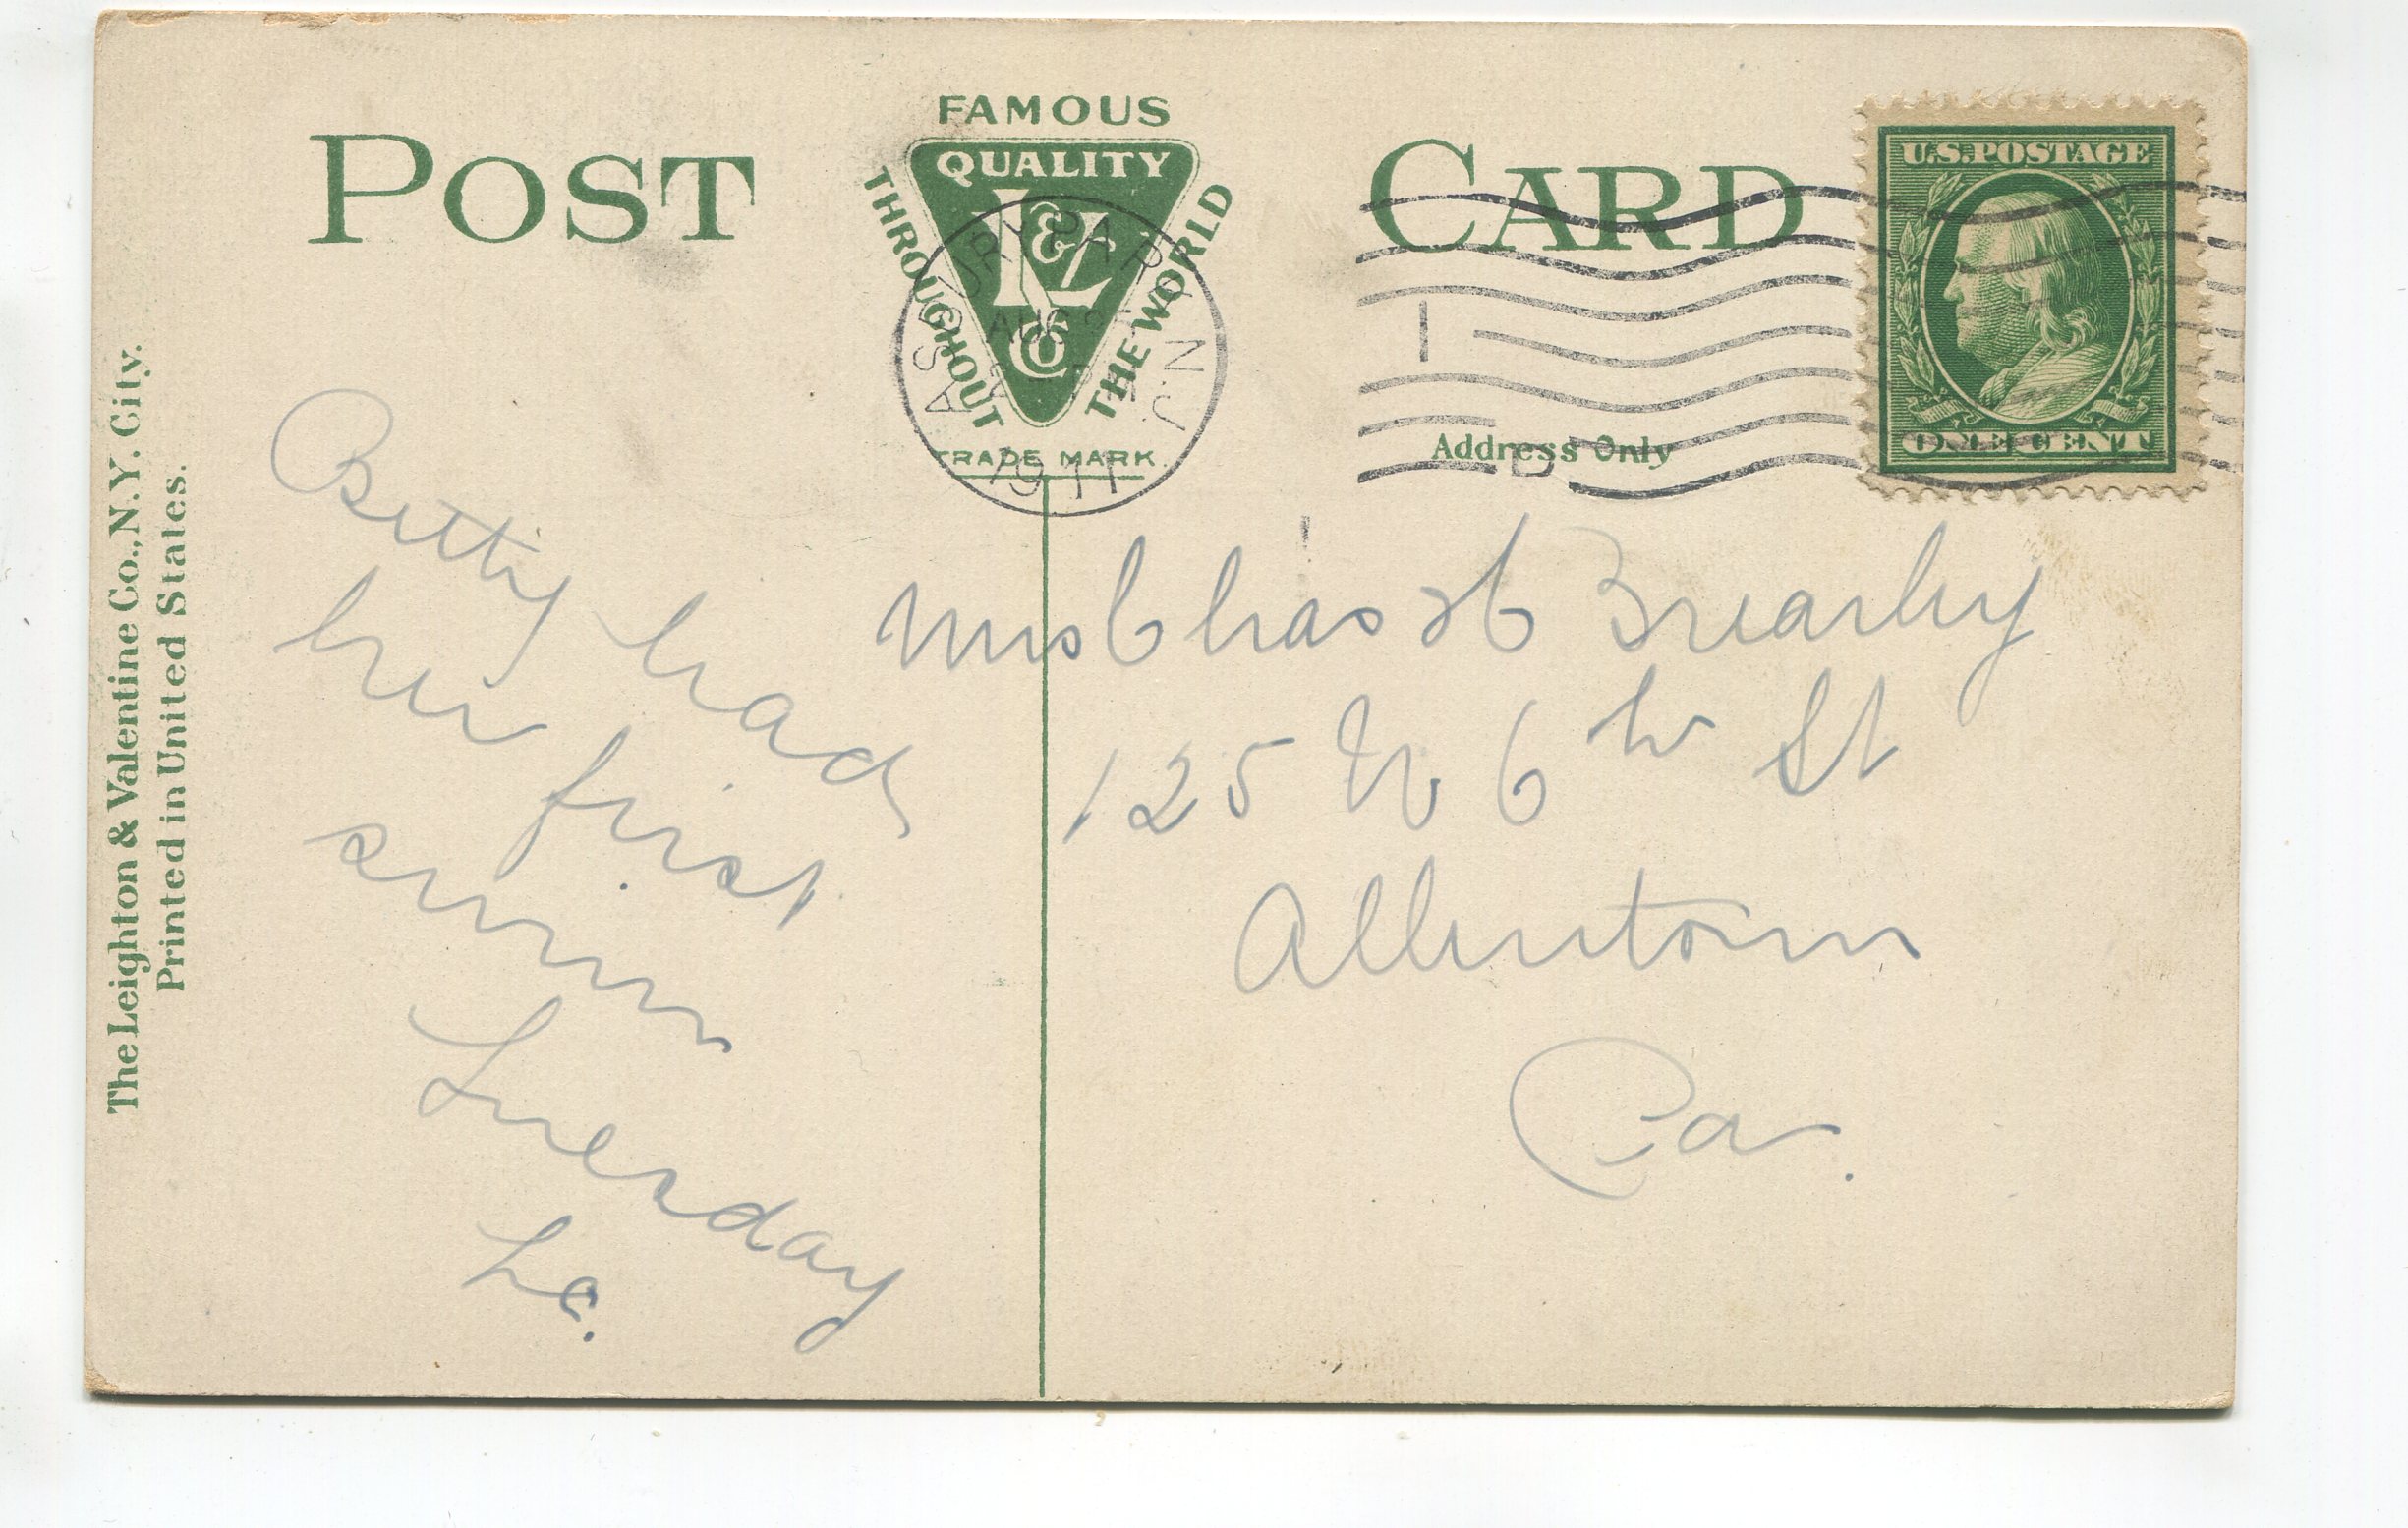 POST CARD
FAMOUS
QUALITY
THROUGHOUT THE WORLD
L & V
Co
TRADE MARK.
ASBURY PARK N.J.
AUG
1911
U.S. POSTAGE
ONE CENT
Address Only
1
D
The Leighton & Valentine Co., N.Y. City.
Printed in United States.
Betty had
her first
swim
Tuesday
Mrs Chas H Brearley
125 N 6th St
Allentown
Pa.